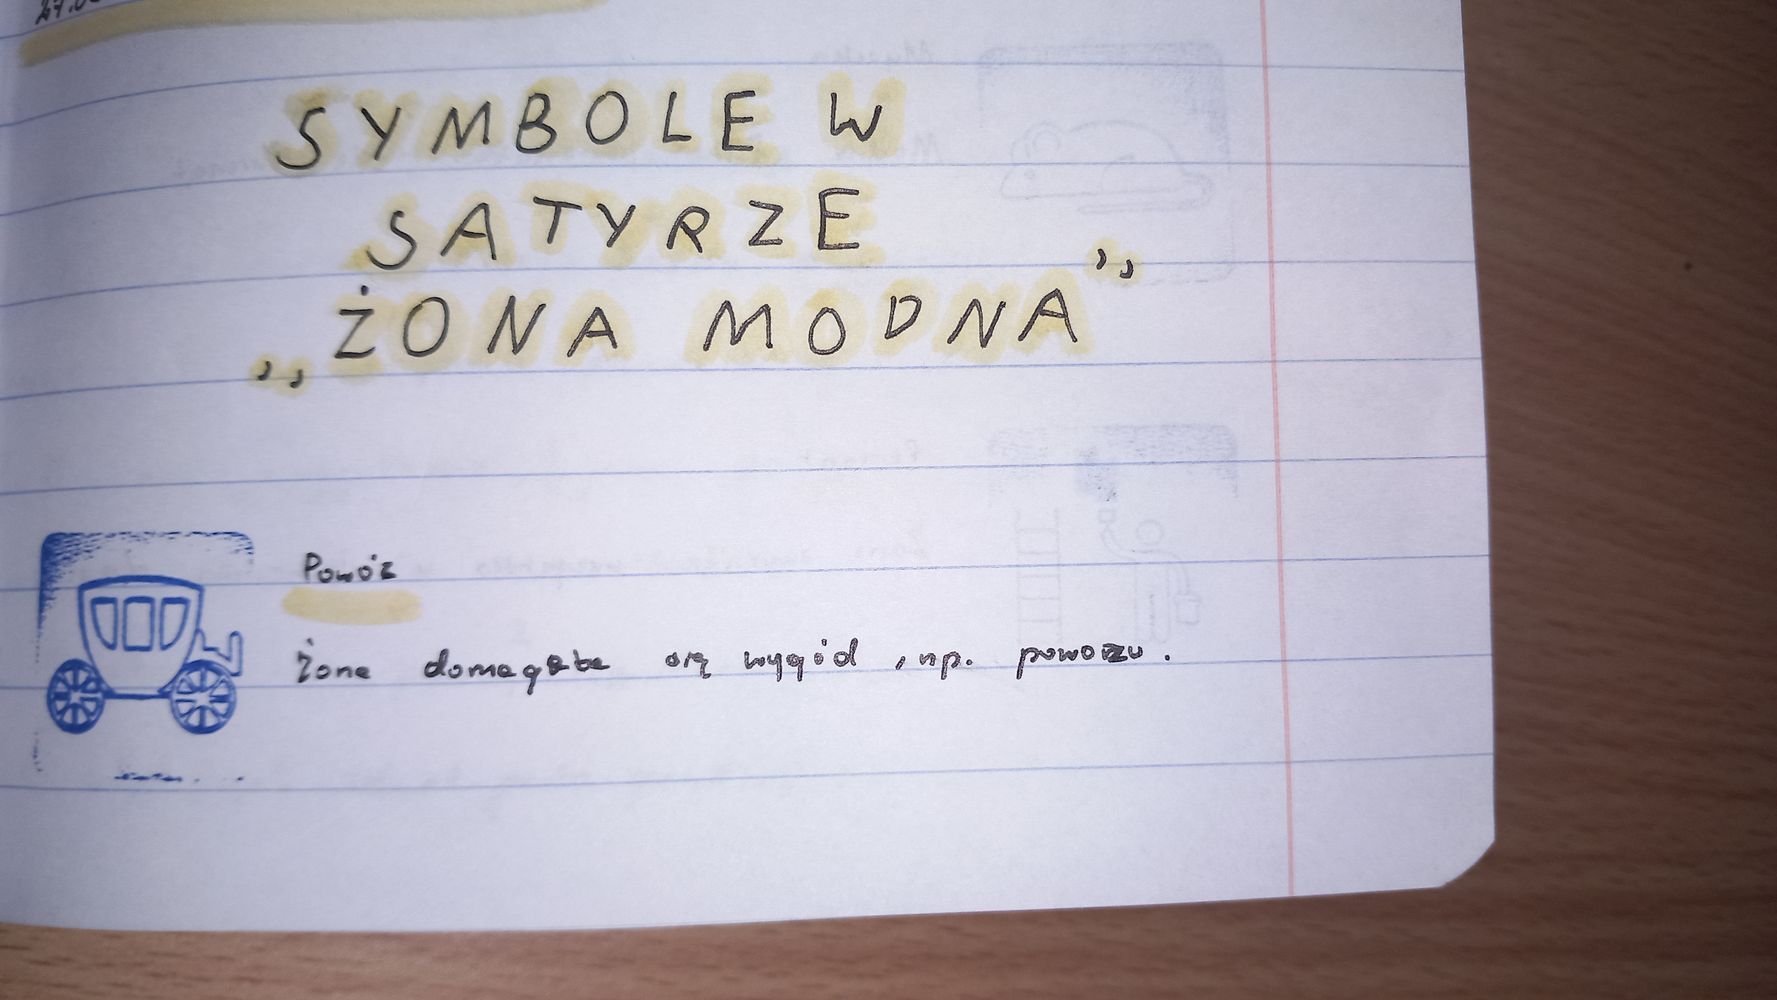 SYMBOLE W
SATYRZE
„ŻONA MODNA”
Powóz
Żona domagała się wygód, np. powozu.